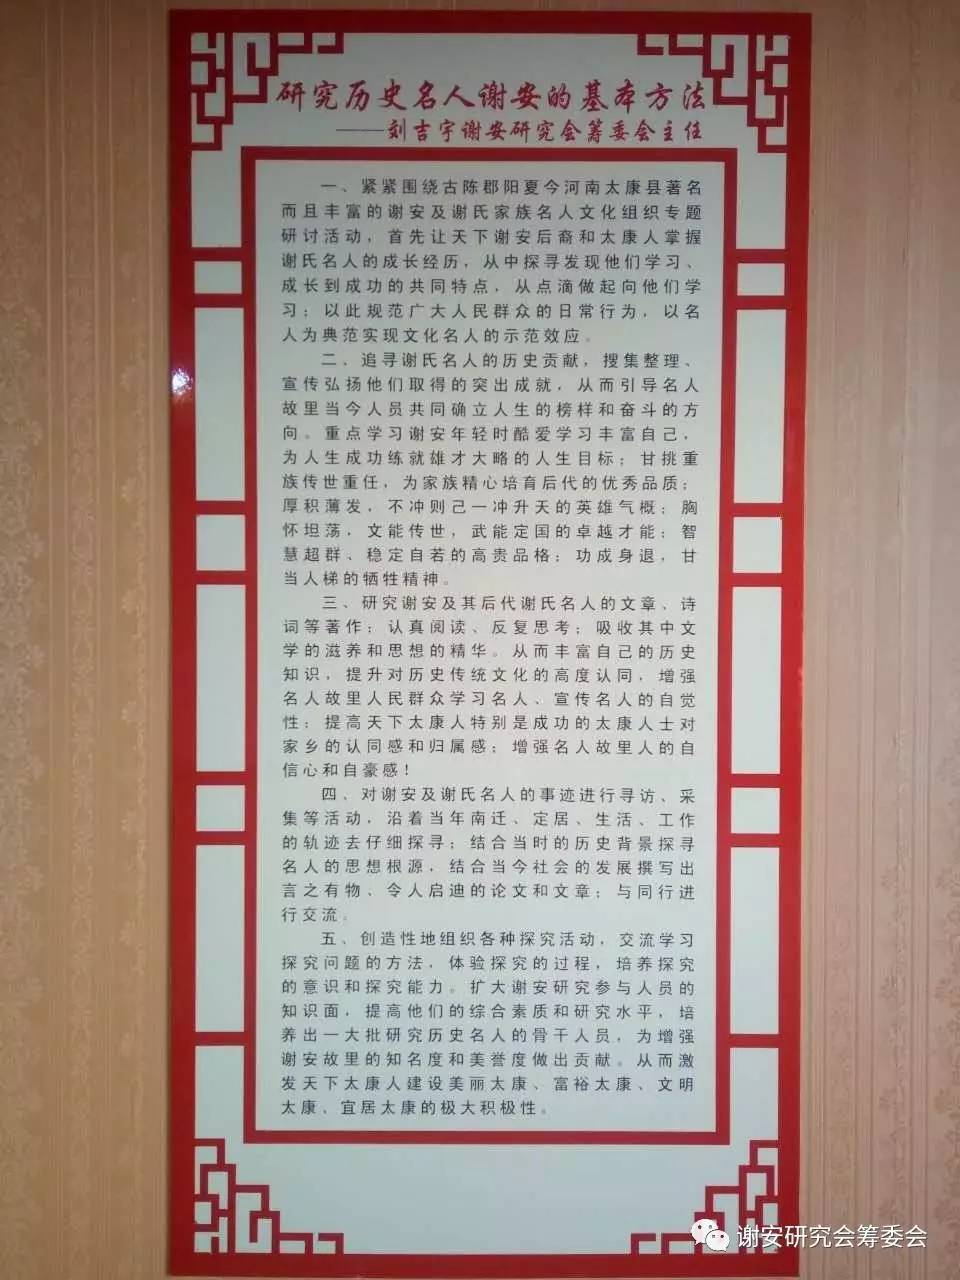 研究历史名人谢安的基本方法
——刘吉宇谢安研究会筹委会主任
一、紧紧围绕古陈郡阳夏今河南太康县著名
而且丰富的谢安及谢氏家族名人文化组织专题
研讨活动，首先让天下谢安后裔和太康人掌握
谢氏名人的成长经历，从中探寻发现他们学习、
成长到成功的共同特点，从点滴做起向他们学
习；以此规范广大人民群众的日常行为，以名
人为典范实现文化名人的示范效应。
二、追寻谢氏名人的历史贡献，搜集整理、
宣传弘扬他们取得的突出成就，从而引导名人
故里当今人员共同确立人生的榜样和奋斗的方
向。重点学习谢安年轻时酷爱学习丰富自己，
为人生成功练就雄才大略的人生目标；甘挑重
族传世重任，为家族精心培育后代的优秀品质；
厚积薄发，不冲则已一冲升天的英雄气概；胸
怀坦荡，文能传世，武能定国的卓越才能；智
慧超群、稳定自若的高贵品格；功成身退，甘
当人梯的牺牲精神。
三、研究谢安及其后代谢氏名人的文章、诗
词等著作；认真阅读、反复思考；吸收其中文
学的滋养和思想的精华。从而丰富自己的历史
知识，提升对历史传统文化的高度认同，增强
名人故里人民群众学习名人、宣传名人的自觉
性；提高天下太康人特别是成功的太康人士对
家乡的认同感和归属感；增强名人故里人的自
信心和自豪感！
四、对谢安及谢氏名人的事迹进行寻访、采
集等活动，沿着当年南迁、定居、生活、工作
的轨迹去仔细探寻；结合当时的历史背景探寻
名人的思想根源，结合当今社会的发展撰写出
言之有物、令人启迪的论文和文章；与同行进
行交流。
五、创造性地组织各种探究活动，交流学习
探究问题的方法，体验探究的过程，培养探究
的意识和探究能力。扩大谢安研究参与人员的
知识面，提高他们的综合素质和研究水平，培
养出一大批研究历史名人的骨干人员，为增强
谢安故里的知名度和美誉度做出贡献。从而激
发天下太康人建设美丽太康、富裕太康、文明
太康、宜居太康的极大积极性。
谢安研究会筹委会